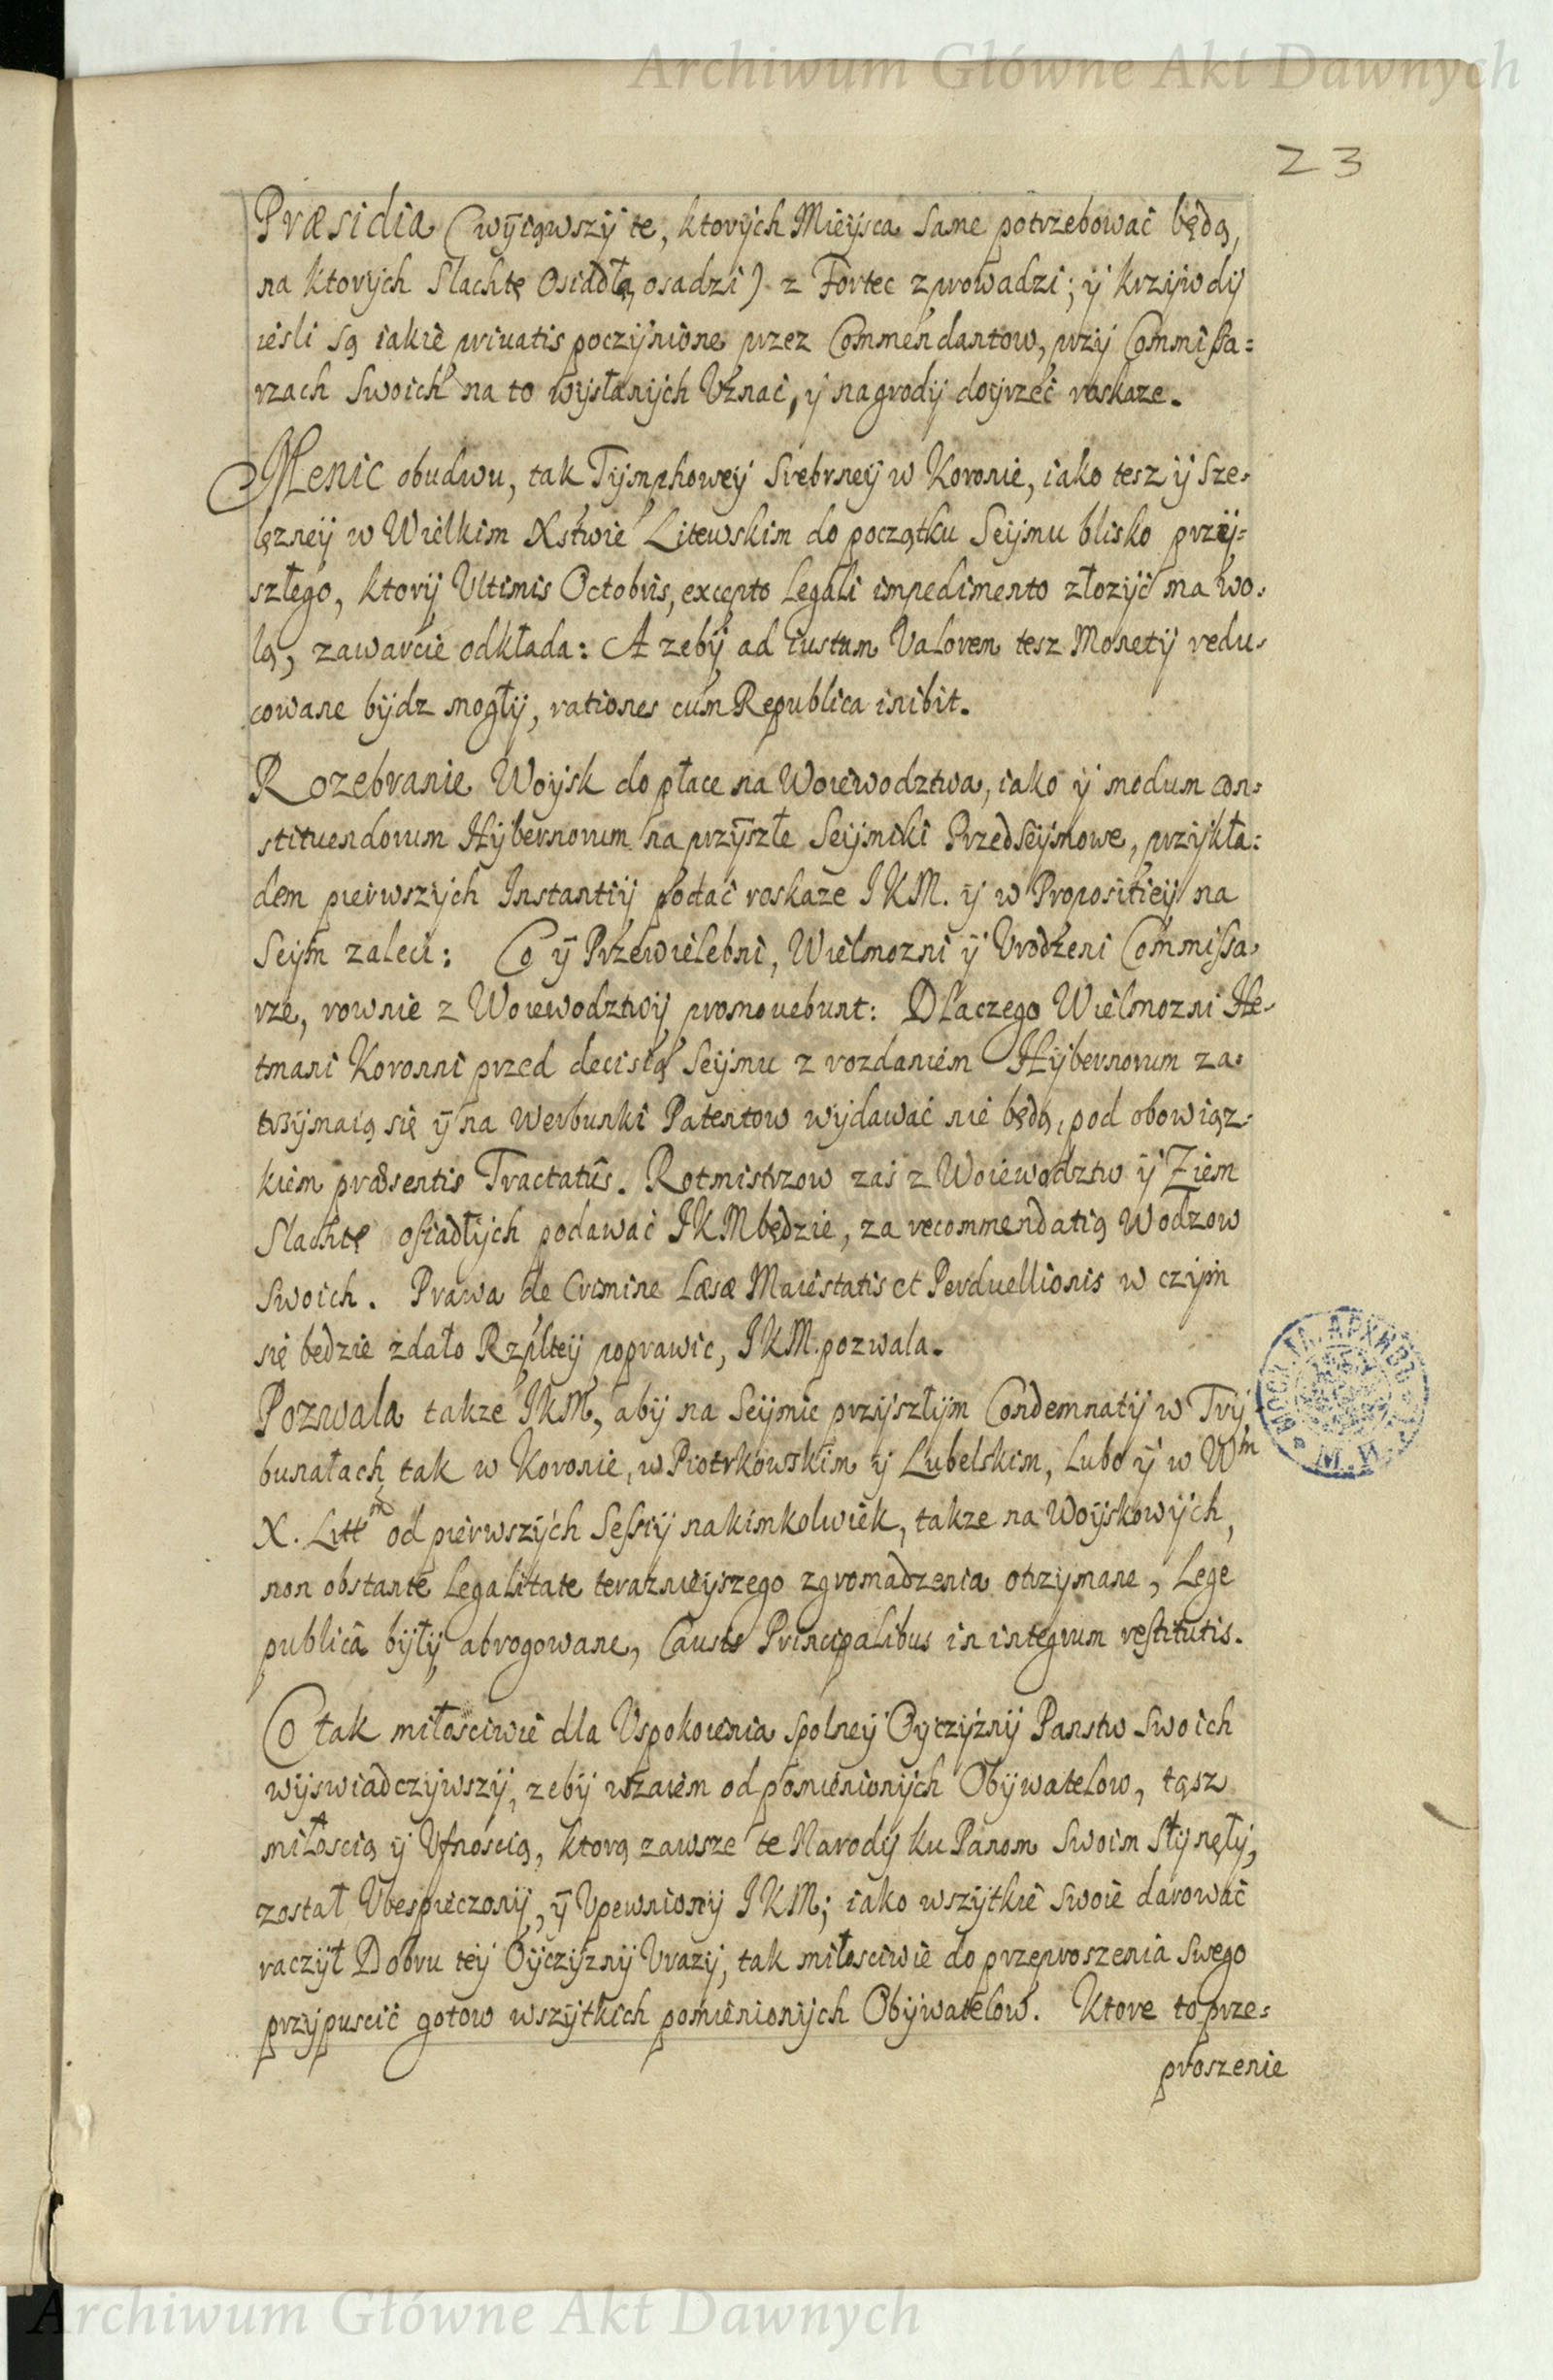 Archiwum Główne Akt Dawnych
23
Præsidia (wyiąwszy te, ktorych Mieysca same potrzebować będą,
na ktorych Slachtę Osiadłą, osadzi) z Fortec zprowadzi; y krzywdy
iesli są iakie priuatis poczynione przez Commendantow, przy Commissa=
rzach Swoich na to wysłanych Vznać, y nagrody doyrzeć roskaze.
Menic obudwu, tak Tymphowey Srebrney w Koronie, iako tesz y Sze=
lęzney w Wielkim Xstwie Litewskim do początku Seymu blisko przy=
szłego, ktory Vltimis Octobris, excepto legali impedimento złozyć ma wo=
lą, zawarcie odkłada: A zeby ad iustum Valorem tesz Monety redu=
cowane bydz mogły, rationes cum Republica inibit.
Rozebranie Woysk do płace na Woiewodztwa, iako y modum con=
stituendorum Hybernorum na przyszłe Seymiki Przedseymowe, przykła=
dem pierwszych Instantiy podać roskaze IKM. y w Propositiey na
Seym zaleci: Co y Przewielebni, Wielmozni y Vrodzeni Commissa=
rze, rownie z Woiewodztwy promouebunt: Dlaczego Wielmozni He=
tmani Koronni przed decisią Seymu z rozdaniem Hybernorum za=
trzymaią się y na Werbunki Patentow wydawać nie będą, pod obowiąz=
kiem præsentis Tractatûs. Rotmistrzow zaś z Woiewodztw y Ziem
Slachtę osiadłych podawać IKM będzie, za recommendatią Wodzow
Swoich. Prawa de Crimine Læsæ Maiestatis et Perduellionis w czym
się będzie zdało Rzpltey poprawic, IKM. pozwala.
Pozwala takze IKM, aby na Seymie przyszłym Condemnaty w Try
bunałach tak w Koronie, w Piotrkowskim y Lubelskim, Lubo y w Wm
X. Littm od pierwszych Sessiy nakimkolwiek, takze na Woyskowych,
non obstante legalitate teraznieyszego zgromadzenia otrzymane, Lege
publicâ były abrogowane, Causis Principalibus in integrum restitutis.
Co tak miłosciwie dla Vspokoienia spolney Oyczyzny Panstw Swoich
wyswiadczywszy, zeby wzaiem od pomienionych Obywatelow, tąsz
miłoscią y Vfnoscią, ktorą zawsze te Narody ku Panom Swoim słynęły,
został Vbespieczony, y Vpewniony IKM; iako wszytkie swoie darować
raczył Dobru tey Oyczyzny Vrazy, tak miłosciwie do przeproszenia Swego
przypuscić gotow wszytkich pomienionych Obywatelow. Ktore to prze=
proszenie
Archiwum Główne Akt Dawnych